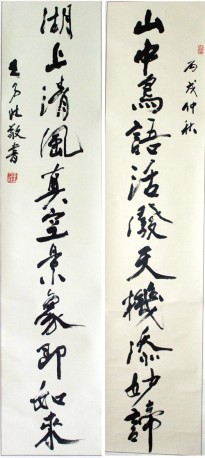 丙戌仲秋
山中鳥語活潑天機添妙諦
湖上清風真空景象即如來
敬書